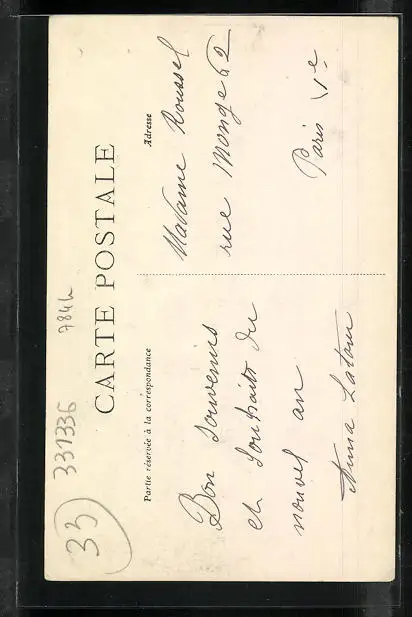 CARTE POSTALE
Partie réservée à la correspondance
Adresse
Bon souvenirs
et souhaits du
nouvel an
Anna Latour
Madame Roussel
rue Monge 62
Paris Ve
33
331336
784h